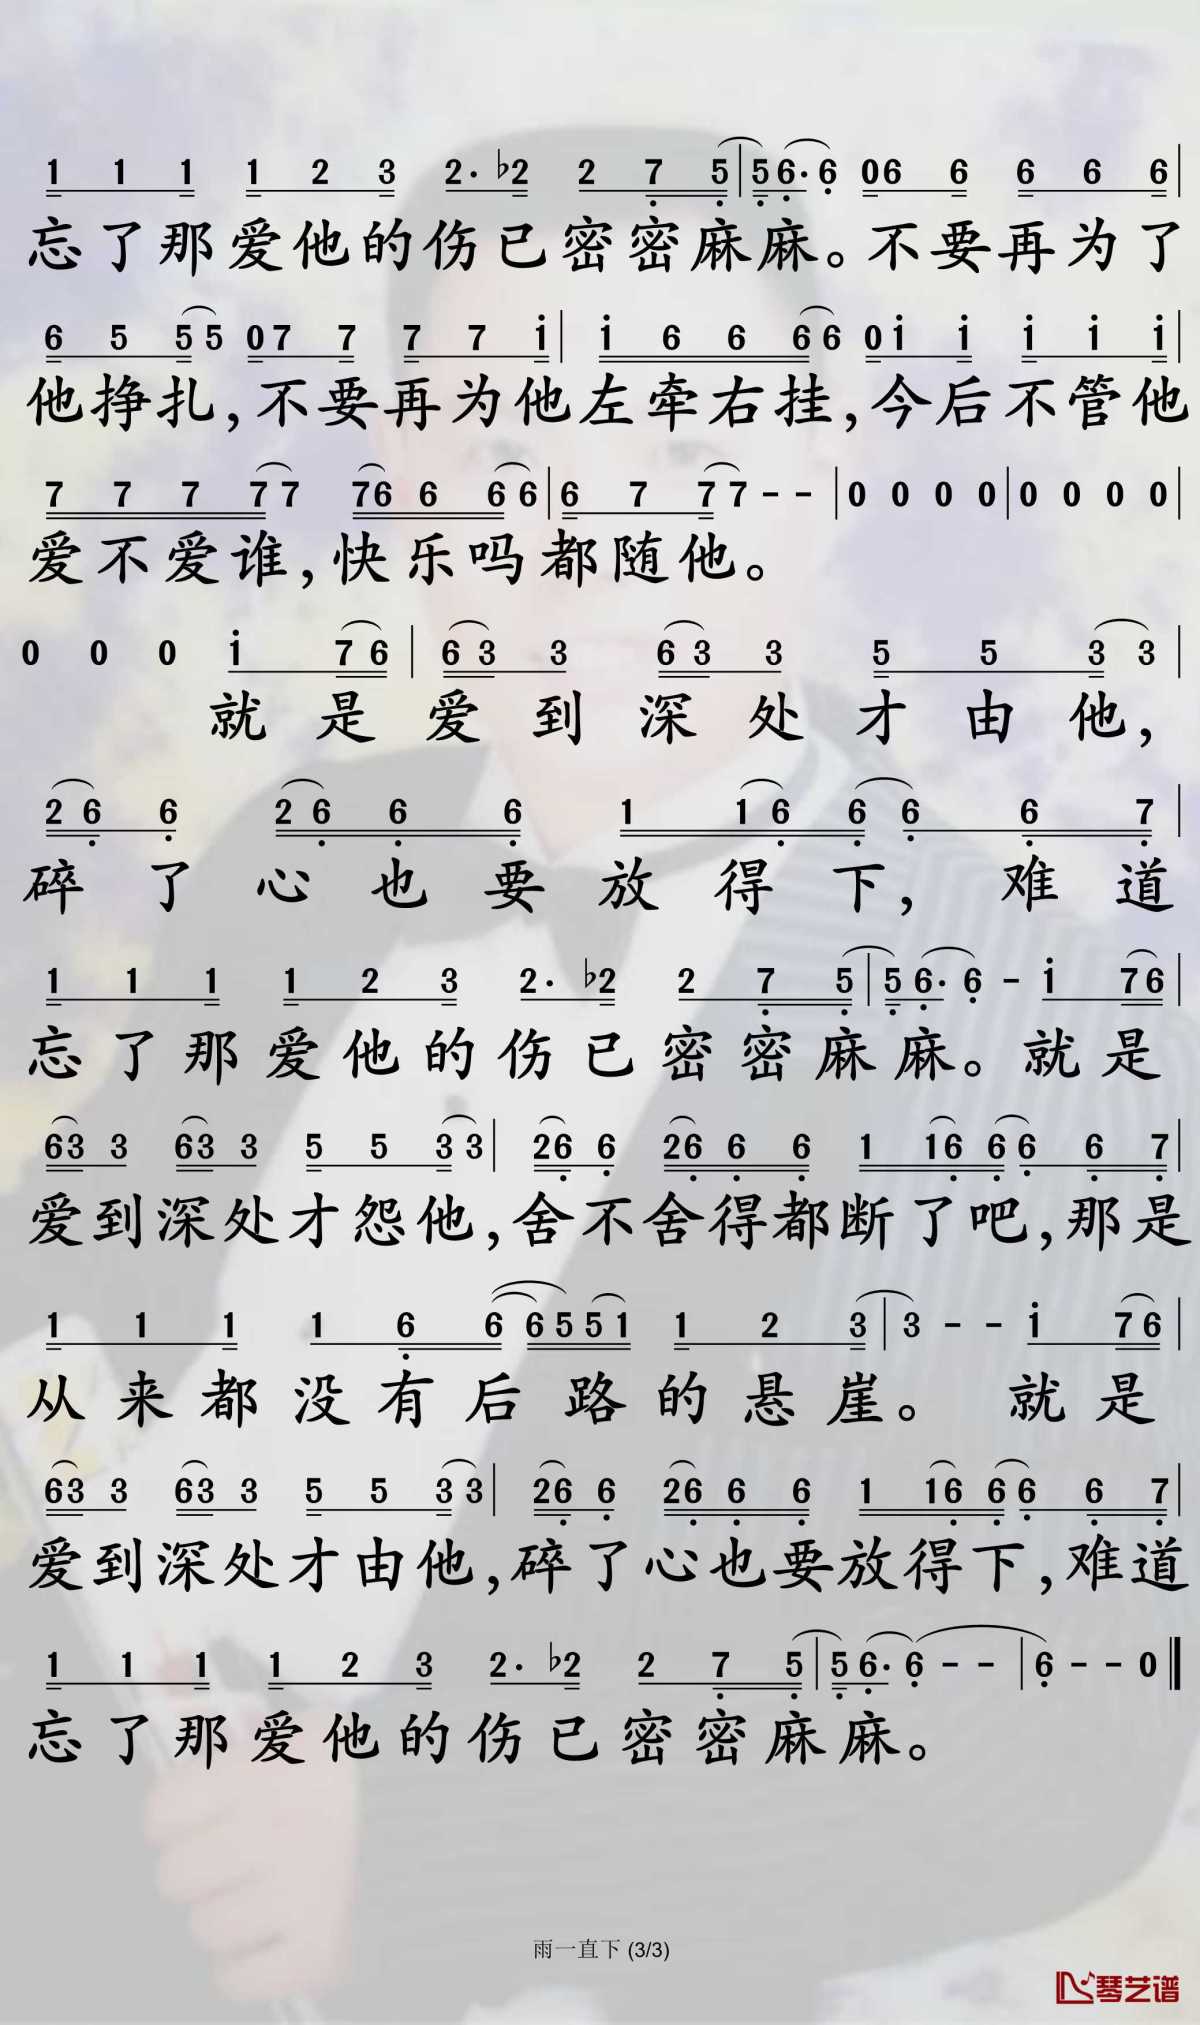 1 1 1 1 2 3 2· ♭2 2 7 5 | 5 6· 6 06 6 6 6 6 |
忘了那爱他的伤已密密麻麻。不要再为了
6 5 5 5 07 7 7 7 i | i 6 6 6 6 0 i i i i i |
他挣扎,不要再为他左牵右挂,今后不管他
7 7 7 7 7 76 6 6 6 | 6 7 7 7 - - | 0 0 0 0 | 0 0 0 0 |
爱不爱谁,快乐吗都随他。
0 0 0 i 7 6 | 6 3 3 6 3 3 5 5 3 3 |
就是爱到深处才由他,
2 6 6 2 6 6 6 1 1 6 6 6 6 7 |
碎了心也要放得下,难道
1 1 1 1 2 3 2· ♭2 2 7 5 | 5 6· 6 - i 76 |
忘了那爱他的伤已密密麻麻。就是
63 3 63 3 5 5 3 3 | 26 6 26 6 6 1 16 6 6 6 7 |
爱到深处才怨他,舍不舍得都断了吧,那是
1 1 1 1 6 6 6 5 5 1 1 2 3 | 3 - - i 76 |
从来都没有后路的悬崖。就是
63 3 63 3 5 5 3 3 | 26 6 26 6 6 1 16 6 6 6 7 |
爱到深处才由他,碎了心也要放得下,难道
1 1 1 1 2 3 2· ♭2 2 7 5 | 5 6· 6 - - | 6 - - 0 ‖
忘了那爱他的伤已密密麻麻。
雨一直下 (3/3)
琴艺谱